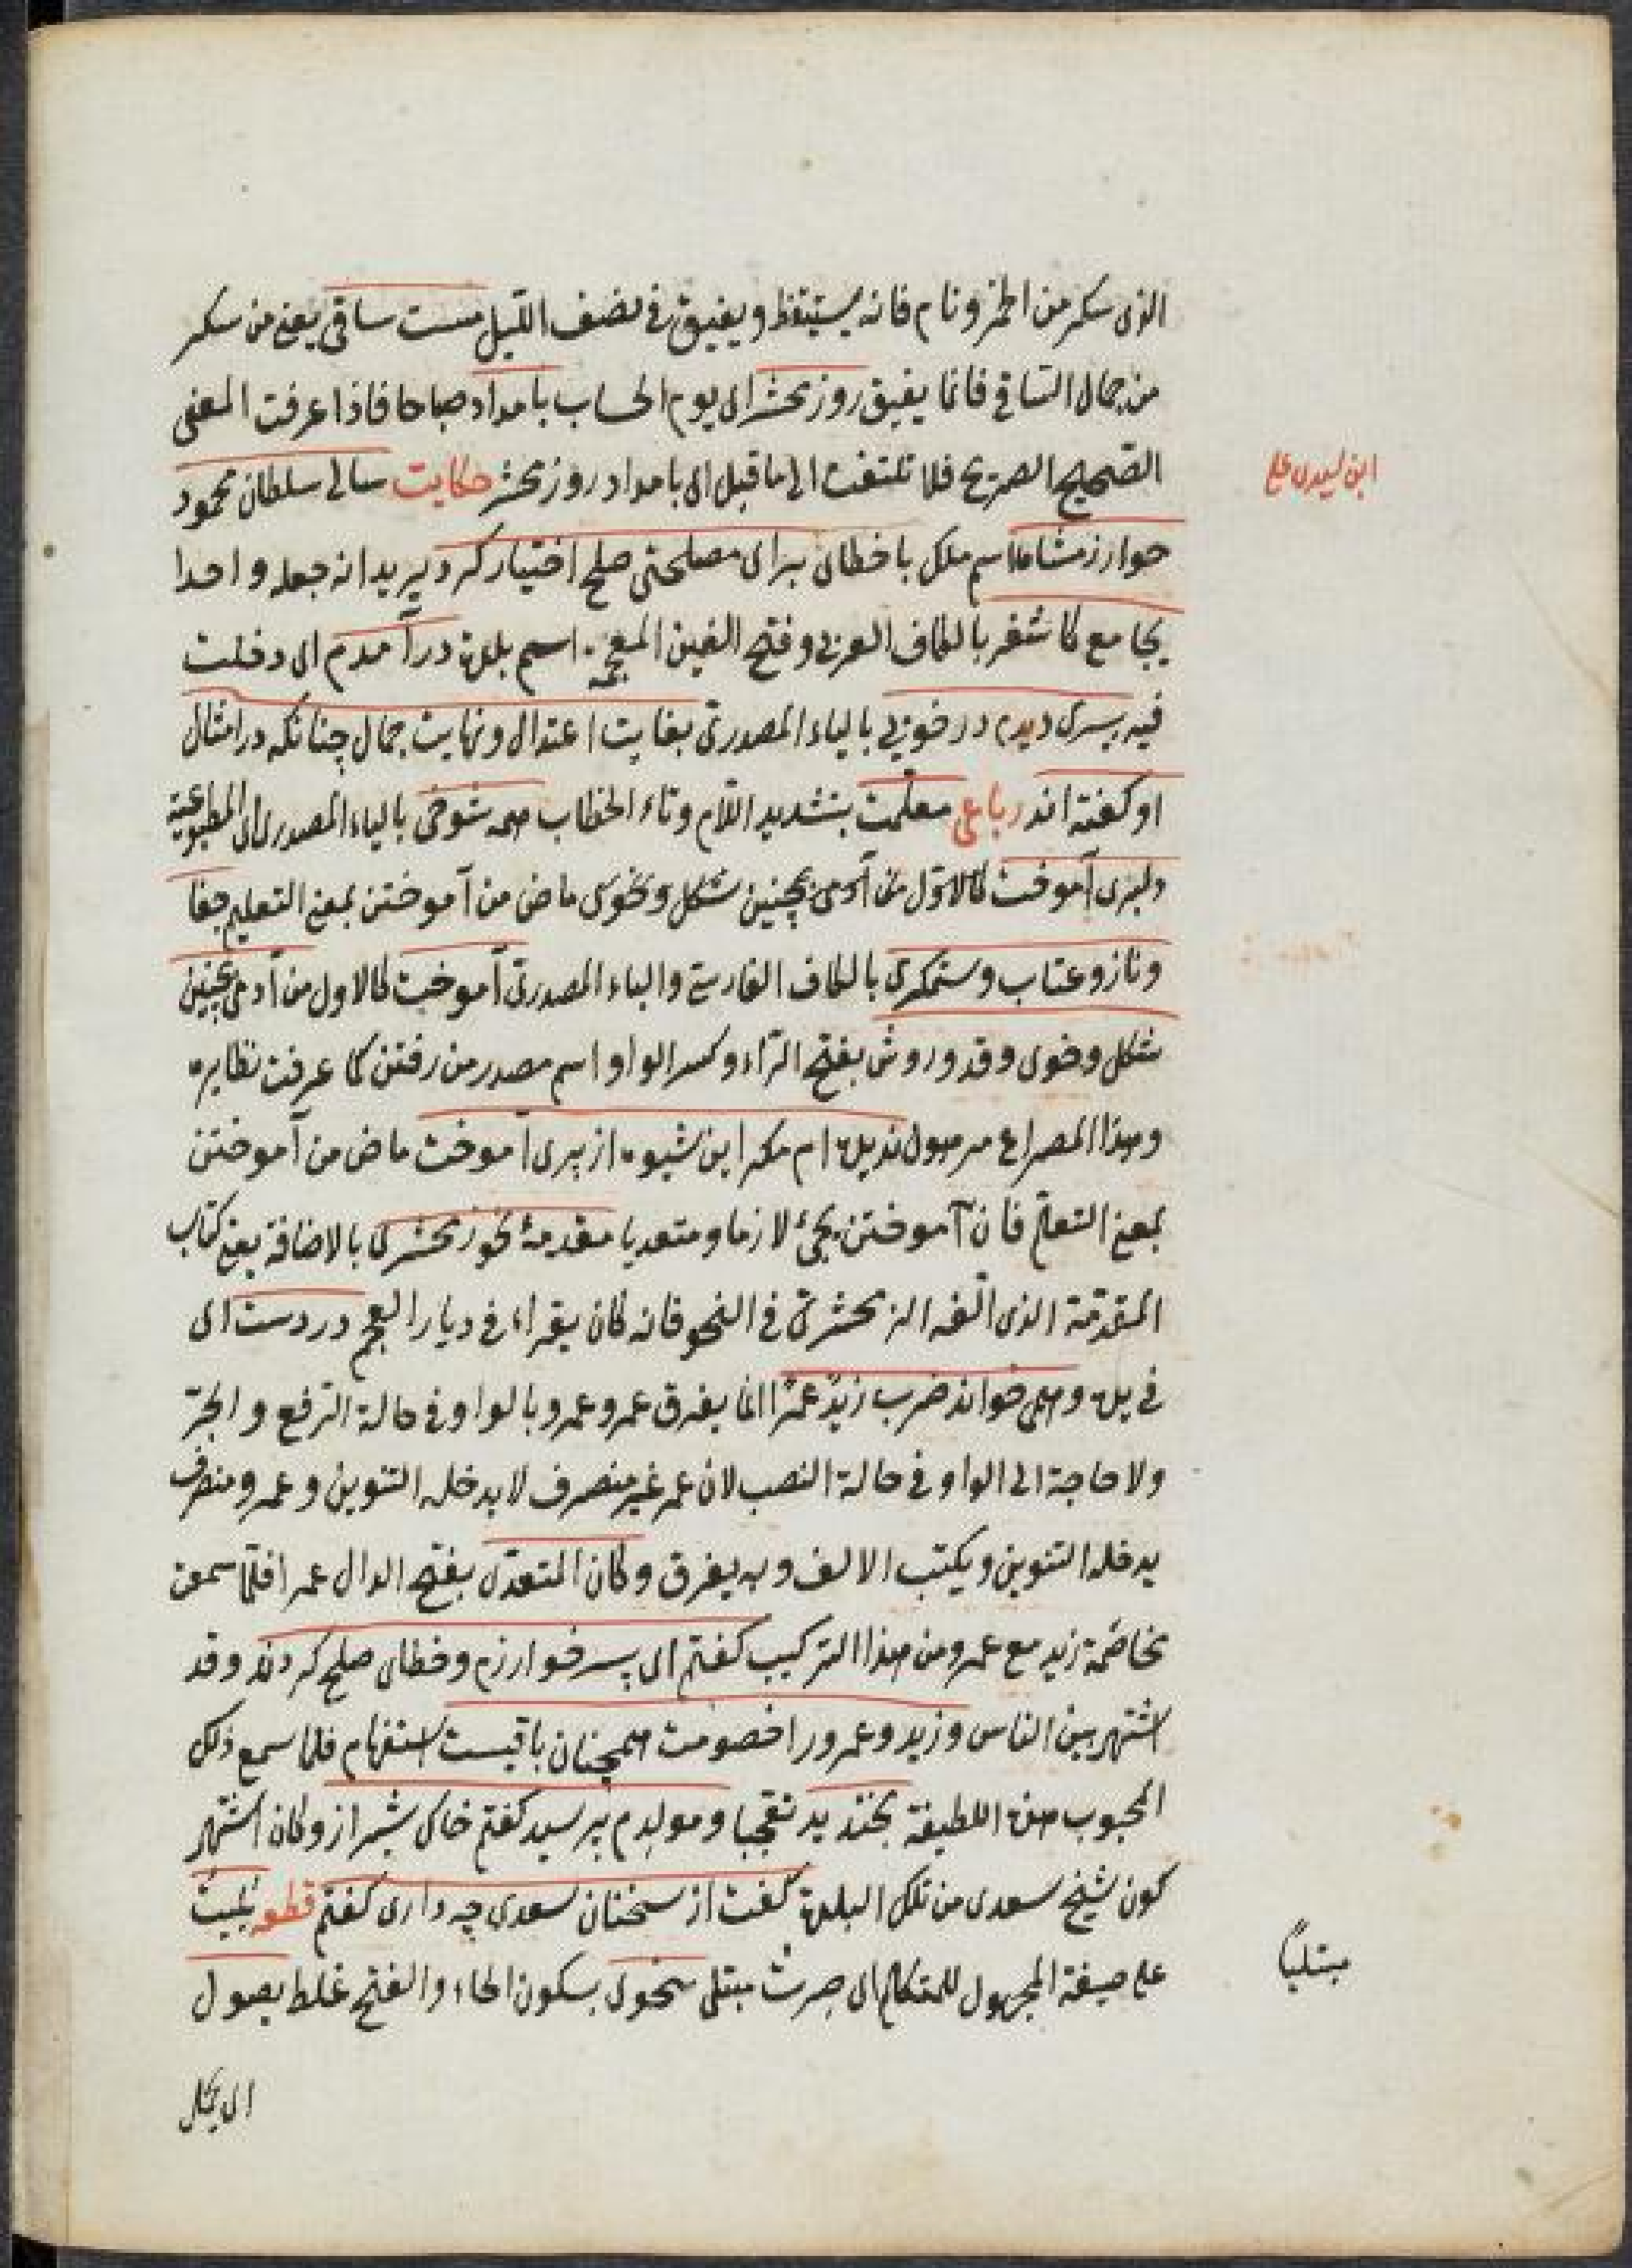 الذى سكر من الخمر ونام فانه يستيقظ ويفيق فى نصف الليل مست ساقى يعنى من سكر
من جمال الساقى فانما يفيق روز محشر اى يوم الحساب بامداد صباحا فاذا عرفت المعنى
الصحيح الصريح فلا تلتفت الى ما قيل اى بامداد روز محشر حكايت سالى سلطان محمود
خوارزمشاه اسم ملك باخطاى براى مصلحتى صلح اختيار كرد يريد انه جعله واحدا
بجامع كاشغر بالكاف العربى وفتح الغين المعجمة اسم بلدة درآمدم اى دخلت
فيه پسرى ديدم در خوبى بالياء المصدرى بغايت اعتدال ونهايت جمال چنانكه در امثال
او كفته اند رباعى معلمت بتشديد اللام وتاء الخطاب همه شوخى بالياء المصدرى اى المطبوعية
دلبرى آموخت كالاول من آدمى بچنين شكل وخوى ماض من آموختن بمعنى التعليم جفا
وناز وعتاب وستمكرى بالكاف الفارسى والياء المصدرى آموخت كالاول من آدمى بچنين
شكل وخوى وقد وروش بفتح الراء وكسر الواو اسم مصدر من رفتن كما عرفت نظايره
وهذا المصراع مرهون نديده ام مكر اين شيوه از پرى آموخت ماض من آموختن
بمعنى التعلم فان آموختن يجئ لازما ومتعديا مقدمۀ نحو زمخشرى بالاضافة يعنى كتاب
المقدمة الذى الفه الزمخشرى فى النحو فانه كان يقراء فى ديار العجم در دست اى
فى يده وهمى خواند ضرب زيد عمرًا انما يفرق عمر وعمرو بالواو فى حالة الرفع والجر
ولا حاجة الى الواو فى حالة النصب لان عمر غير منصرف لا يدخله التنوين وعمرو منصرف
يدخله التنوين ويكتب الالف وبه يفرق وكان المتعدى بفتح الدال عمرا فلما سمعت
مخاصمة زيد مع عمرو من هذا التركيب كفتم اى پسر خوارزم وخطاى صلح كردند وقد
اشتهر بين الناس وزيد وعمرو را خصومت همچنان باقيست استفهام فلما سمع ذلك
المحبوب هذه اللطيفة بخنديد تعجبا ومولدم پرسيد كفتم خاك شيراز وكان اشتهر
كون شيخ سعدى من تلك البلدة كفت از سخنان سعدى چه دارى كفتم قطعه بليت
على صيغة المجهول للمتكلم اى صرت مبتلى بنحوى بسكون الحاء والفتح غلط يصول
مبتليًا
اى يحمل